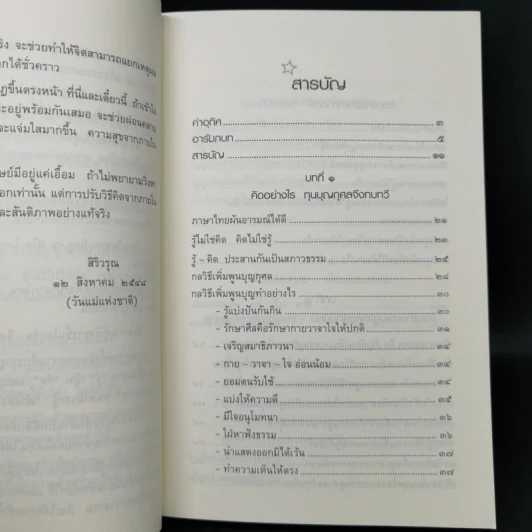 ริง จะช่วยทำให้จิตสามารถแยกเหตุผล
กได้ชั่วคราว
ฏขึ้นตรงหน้า ที่นี่และเดี๋ยวนี้ ถ้าเข้าใจ
ะอยู่พร้อมกันเสมอ จะช่วยผ่อนคลาย
ะแจ่มใสมากขึ้น ความสุขจากภายใน
ษย์มีอยู่แค่เอื้อม ถ้าไม่พยายามวิ่งหา
อกเท่านั้น แต่การปรับวิธีคิดจากภายใน
ะสันติภาพอย่างแท้จริง
สิริวรุณ
๑๒ สิงหาคม ๒๕๔๘
(วันแม่แห่งชาติ)
สารบัญ
คำอุทิศ ๓
อารัมภบท ๕
สารบัญ ๑๑
บทที่ ๑
คิดอย่างไร ทุนบุญกุศลจึงทบทวี
ภาษาไทยผันอารมณ์ได้ดี ๒๑
รู้ไม่ใช่คิด คิดไม่ใช่รู้ ๒๓
รู้ - คิด ประสานกันเป็นสภาวธรรม ๒๕
กลวิธีเพิ่มพูนบุญกุศล ๒๘
กลวิธีเพิ่มพูนบุญทำอย่างไร ๓๐
- รู้แบ่งปันกันกิน ๓๐
- รักษาศีลคือรักษากายวาจาใจให้ปกติ ๓๑
- เจริญสมาธิภาวนา ๓๔
- กาย - วาจา - ใจ อ่อนน้อม ๓๔
- ยอมตนรับใช้ ๓๔
- แบ่งให้ความดี ๓๕
- มีใจอนุโมทนา ๓๖
- ใฝ่หาฟังธรรม ๓๖
- นำแสดงออกมิได้เว้น ๓๗
- ทำความเห็นให้ตรง ๓๗